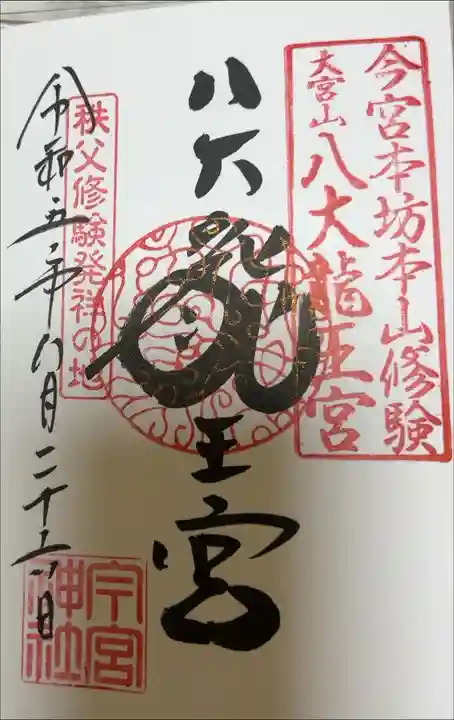 今宮本坊本山修験
大宮山
八大龍王宮
八大龍王宮
秩父修験発祥の地
令和五年六月二十六日
今宮
神社